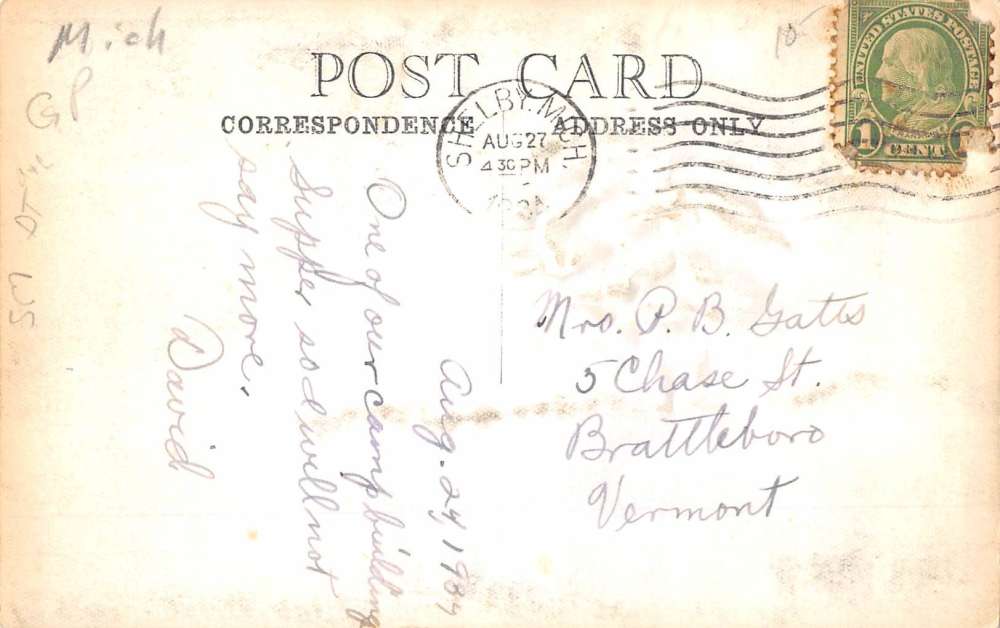 Mich
GP
10
POST CARD
CORRESPONDENCE
ADDRESS ONLY
UNITED STATES POSTAGE
1
SHELBY, MICH.
AUG 27
4 30 PM
Aug. 24, 1934
One of our camp building
Supper so I will not
say more.
David
Mrs. P. B. Gates
5 Chase St.
Brattleboro
Vermont